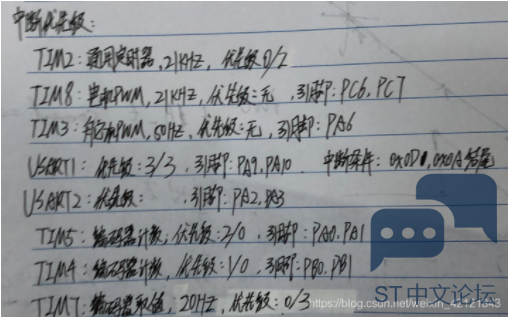 中断优先级:
TIM2: 通用定时器, 21KHZ, 优先级0/2
TIM8: 电机PWM, 21KHZ, 优先级:无, 引脚: PC6, PC7
TIM3: PWM, 50HZ, 优先级:无, 引脚: PA6
USART1: 优先级:3/3, 引脚: PA9, PA10 中断条件: 0X0D, 0X0A结尾
USART2: 优先级: , 引脚: PA2, PA3
TIM5: 编码器计数, 优先级:2/0, 引脚: PA0, PA1
TIM4: 编码器计数, 优先级:1/0, 引脚: PB0, PB1
TIM7: 编码器取值, 20HZ, 优先级: 0/3
ST中文论坛
https://blog.csdn.net/weixin_42121343